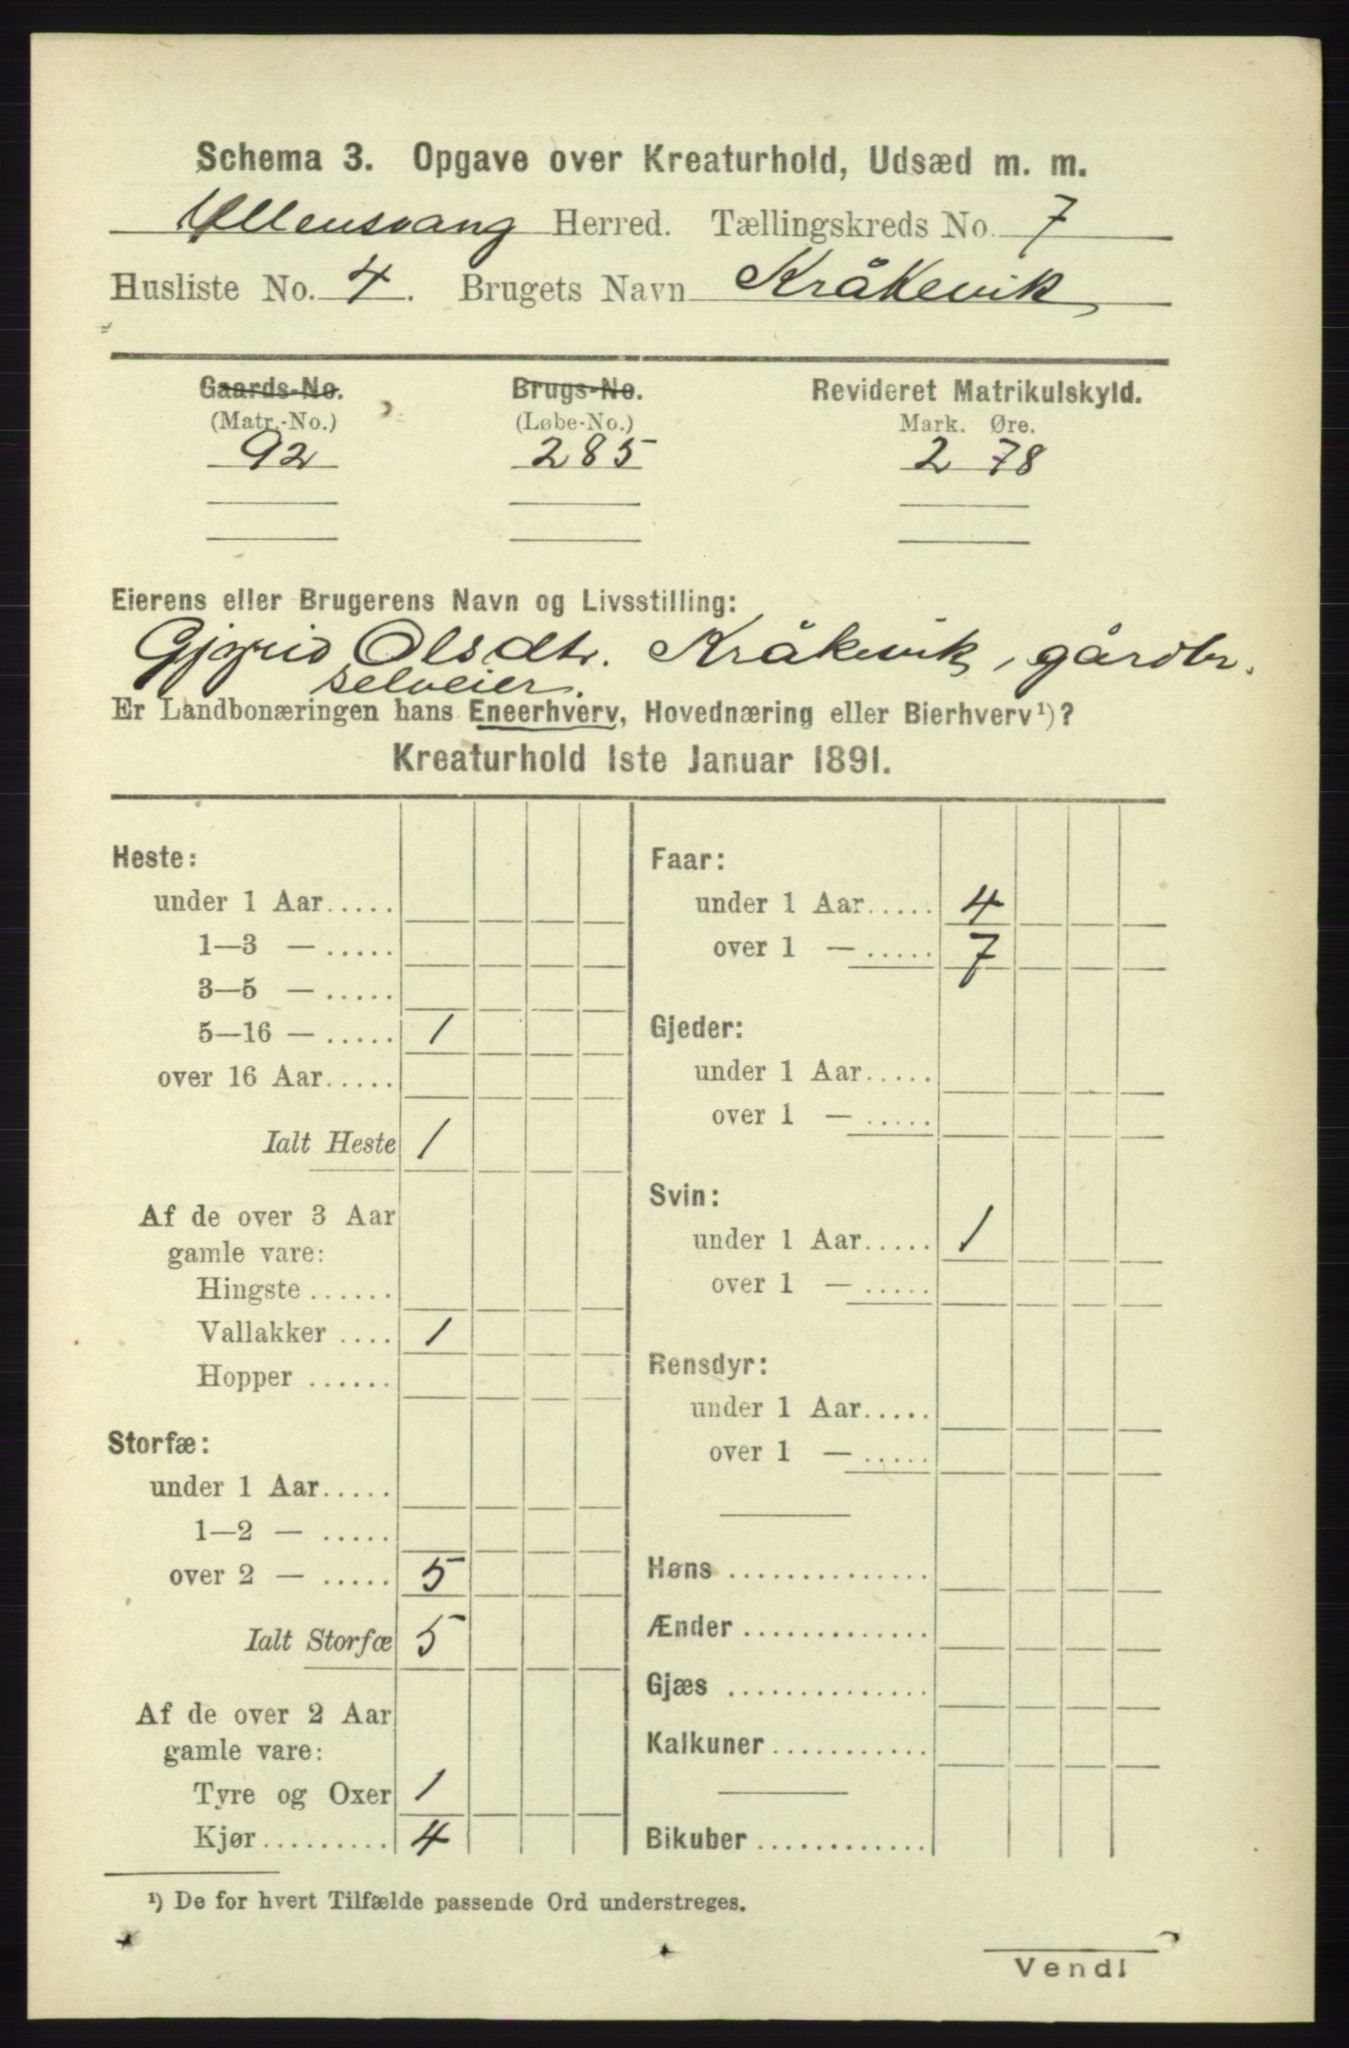 Schema 3. Opgave over Kreaturhold, Udsæd m. m.
Ullensvang Herred. Tællingskreds No. 7
Husliste No. 4. Brugets Navn Kråkevik
Gaards-No. Brugs-No. Revideret Matrikulskyld.
(Matr.-No.) (Løbe-No.) Mark. Øre.
92 285 2 78
Eierens eller Brugerens Navn og Livsstilling:
Olsdtr. Kråkevik, gårdbr.
selveier.
Er Landbonæringen hans Eneerhverv, Hovednæring eller Bierhverv¹)?
Kreaturhold 1ste Januar 1891.
Heste:
under 1 Aar.....
1—3 — .....
3—5 — .....
5—16 — ..... 1
over 16 Aar.....
Ialt Heste 1
Af de over 3 Aar
gamle vare:
Hingste ......
Vallakker .... 1
Hopper ......
Storfæ:
under 1 Aar.....
1—2 — .....
over 2 — ..... 5
Ialt Storfæ 5
Af de over 2 Aar
gamle vare:
Tyre og Oxer 1
Kjør......... 4
Faar:
under 1 Aar..... 4
over 1 — ..... 7
Gjeder:
under 1 Aar.....
over 1 — .....
Svin:
under 1 Aar..... 1
over 1 — .....
Rensdyr:
under 1 Aar.....
over 1 — .....
Høns ..............
Ænder .............
Gjæs ..............
Kalkuner...........
Bikuber ............
¹) De for hvert Tilfælde passende Ord understreges.
Vend!